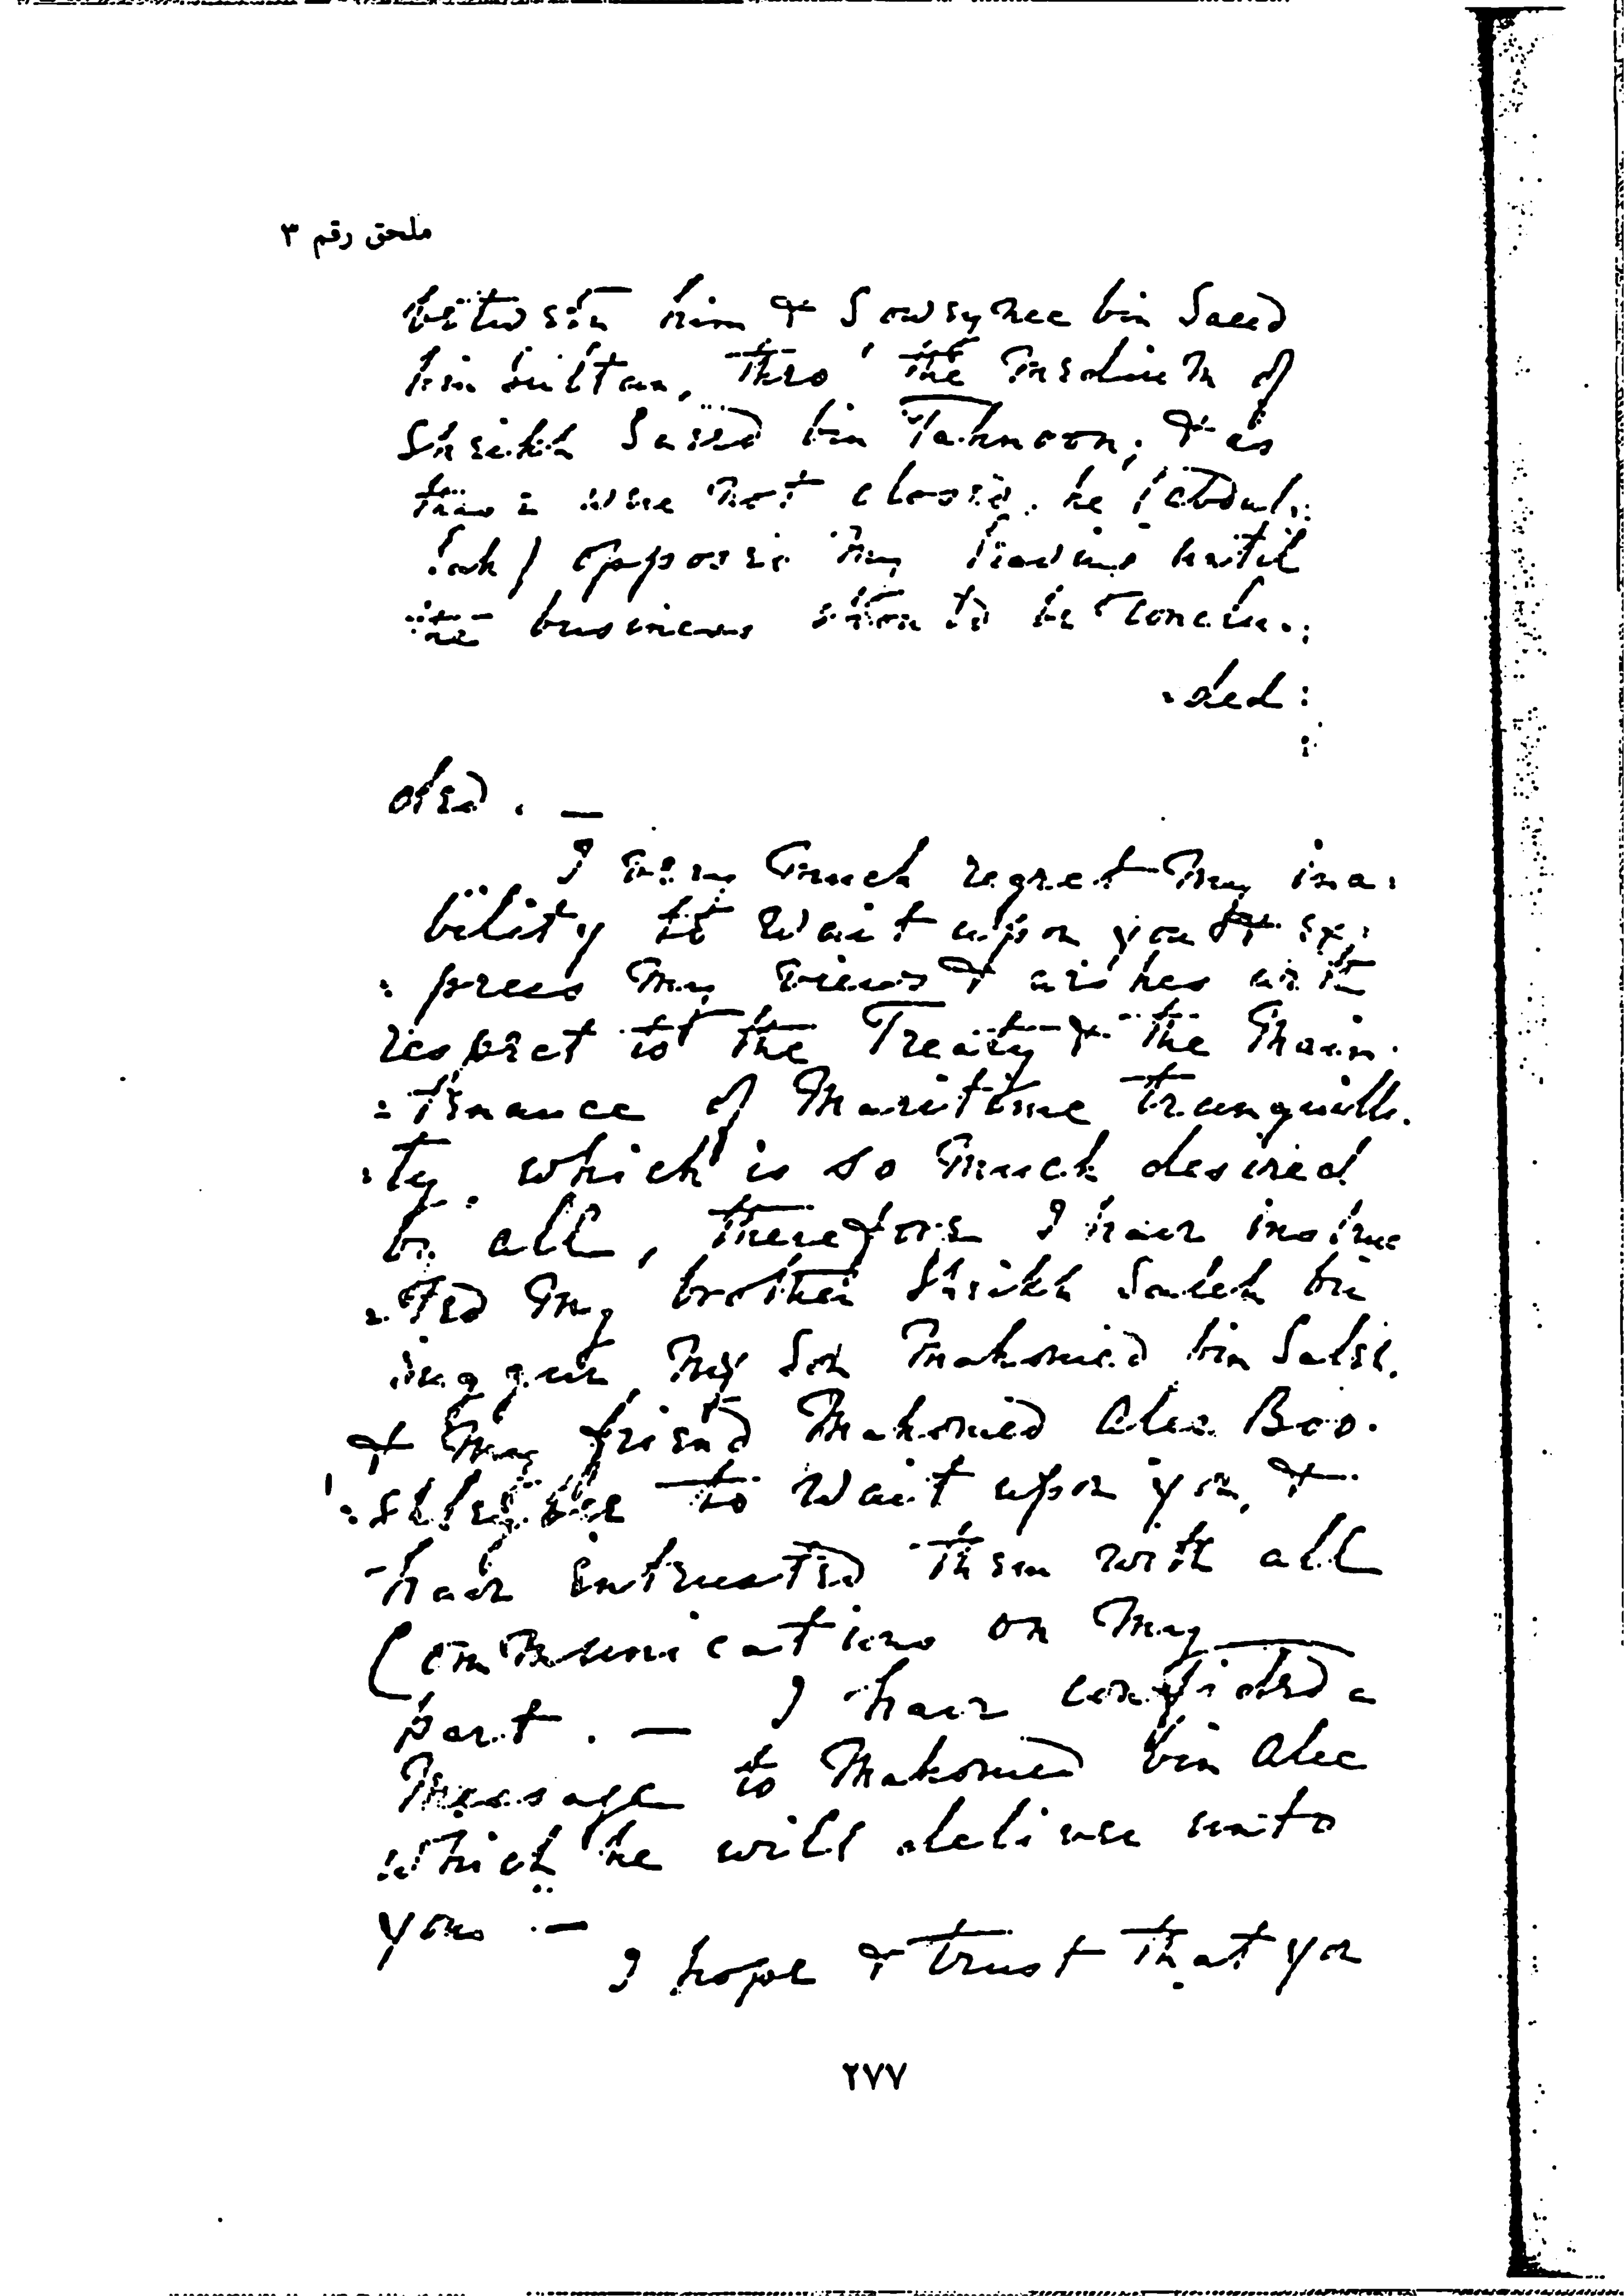 ملحق رقم ٣
between him & Soweynee bin Saeed
bin Sultan, thro' the medium of
Sheikh Saeed bin Tahnoon; & as
this were not closed, he (Abdul
lah) opposed my leaving until
the business should be conclu-
-ded
ded. —
I very much regret my ina-
bility to wait upon you & ex-
press my views & wishes with
respect to the Treaty & the Main-
tenance of Maritime tranquilli-
-ty, which is so much desired
by all, therefore I have instruc
-ted my brother Sheikh Saleh bin
Suggur my Son Mahomed bin Salil.
& my friend Mahomed Alee Boo.
to wait upon you, &
have entrusted them with all
Communications on my
part. — I have confided a
Message to Mahomed bin Alee
which he will deliver unto
you. —
I hope & trust that you
٢٧٧